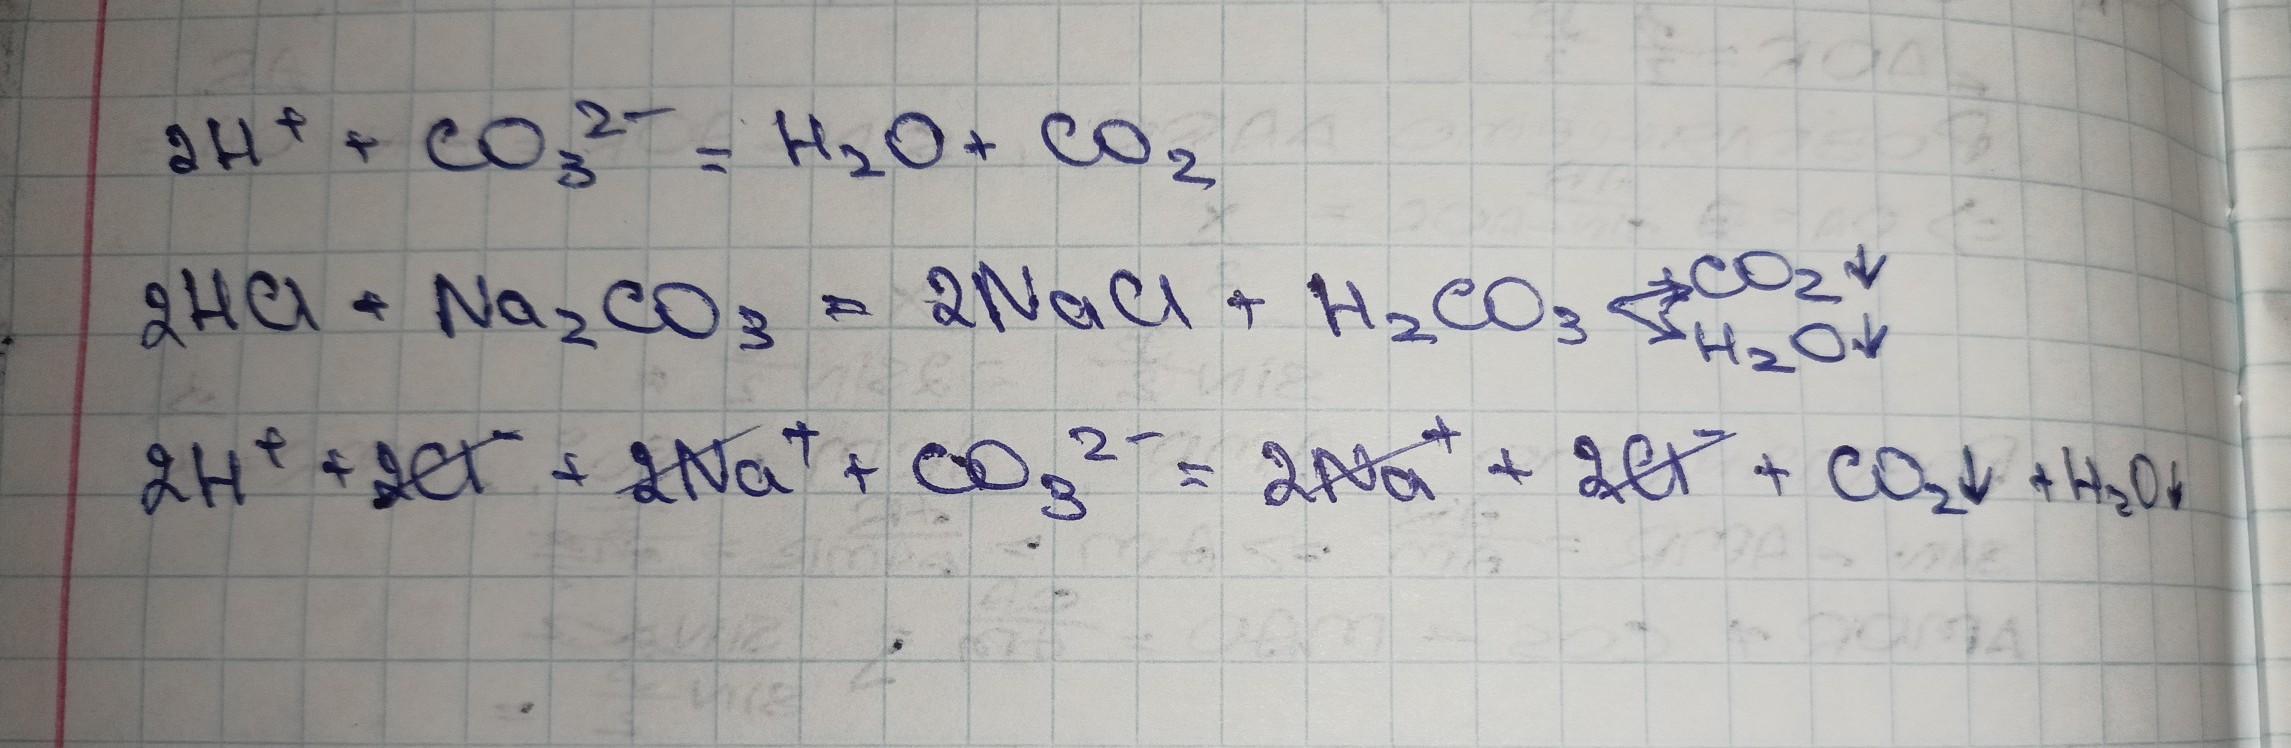 2H⁺ + CO₃²⁻ = H₂O + CO₂
2HCl + Na₂CO₃ = 2NaCl + H₂CO₃ CO₂↓ H₂O↓
2H⁺ + 2Cl⁻ + 2Na⁺ + CO₃²⁻ = 2Na⁺ + 2Cl⁻ + CO₂↓ + H₂O↓